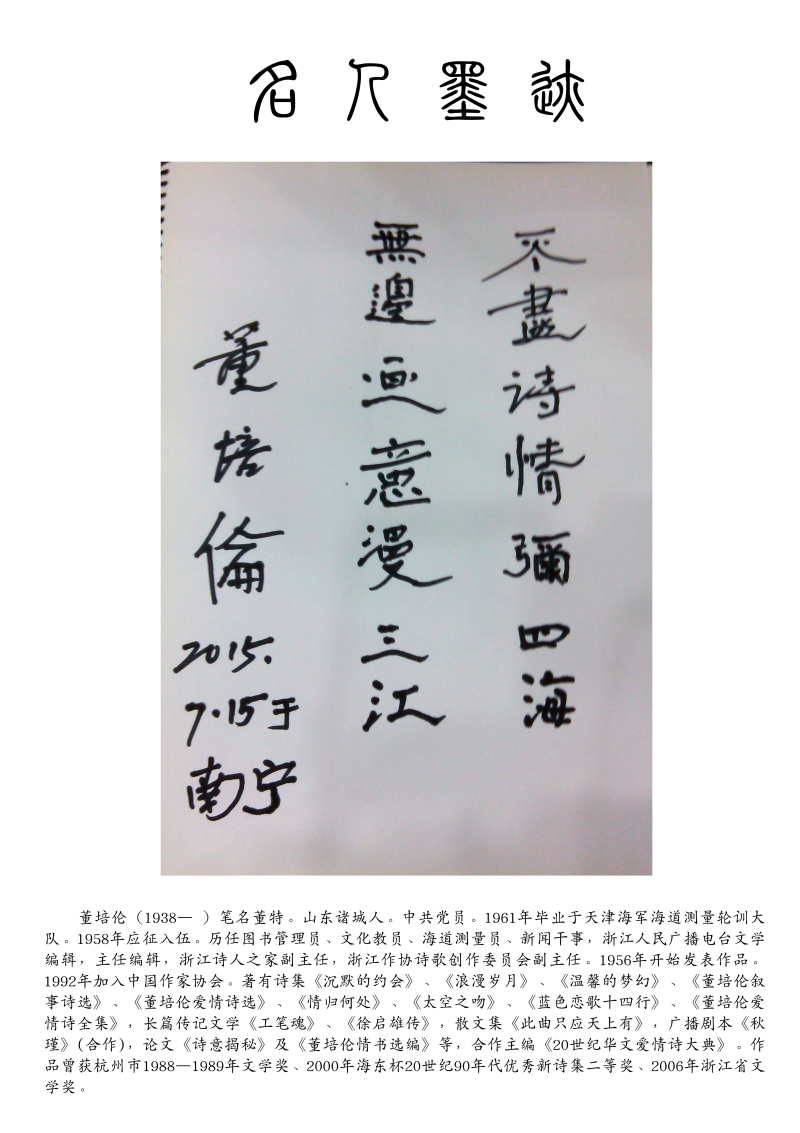 名人墨迹
不盡诗情彌四海
無邊画意漫三江
董培倫
2015.
7.15于
南宁
董培伦（1938— ）笔名董特。山东诸城人。中共党员。1961年毕业于天津海军海道测量轮训大
队。1958年应征入伍。历任图书管理员、文化教员、海道测量员、新闻干事，浙江人民广播电台文学
编辑，主任编辑，浙江诗人之家副主任，浙江作协诗歌创作委员会副主任。1956年开始发表作品。
1992年加入中国作家协会。著有诗集《沉默的约会》、《浪漫岁月》、《温馨的梦幻》、《董培伦叙
事诗选》、《董培伦爱情诗选》、《情归何处》、《太空之吻》、《蓝色恋歌十四行》、《董培伦爱
情诗全集》，长篇传记文学《工笔魂》、《徐启雄传》，散文集《此曲只应天上有》，广播剧本《秋
瑾》(合作)，论文《诗意揭秘》及《董培伦情书选编》等，合作主编《20世纪华文爱情诗大典》。作
品曾获杭州市1988—1989年文学奖、2000年海东杯20世纪90年代优秀新诗集二等奖、2006年浙江省文
学奖。